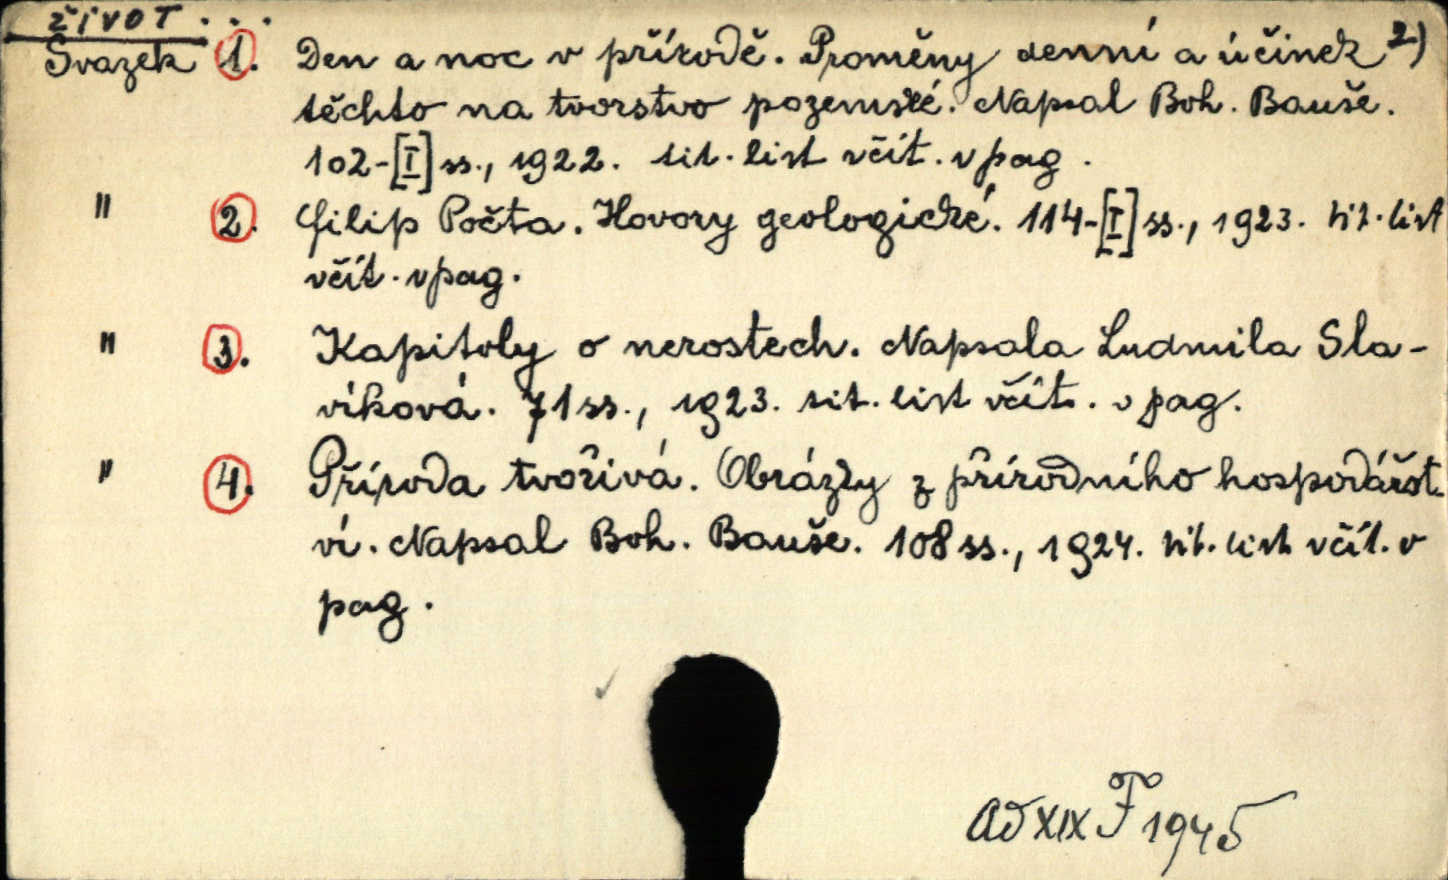 ŽIVOT...
2)
Svazek 1. Den a noc v přírodě. Proměny denní a účinek
těchto na tvorstvo pozemské. Napsal Boh. Bauše.
102-[I] ss., 1922. tit. list včít. v pag.
" 2. Filip Počta. Hovory geologické. 114-[I] ss., 1923. tit. list
včít. v pag.
" 3. Kapitoly o nerostech. Napsala Ludmila Sla-
víková. 71 ss., 1923. tit. list včít. v pag.
" 4. Příroda tvořivá. Obrázky z přírodního hospodářst-
ví. Napsal Boh. Bauše. 108 ss., 1924. tit. list včít. v
pag.
Ad XIX F 1945